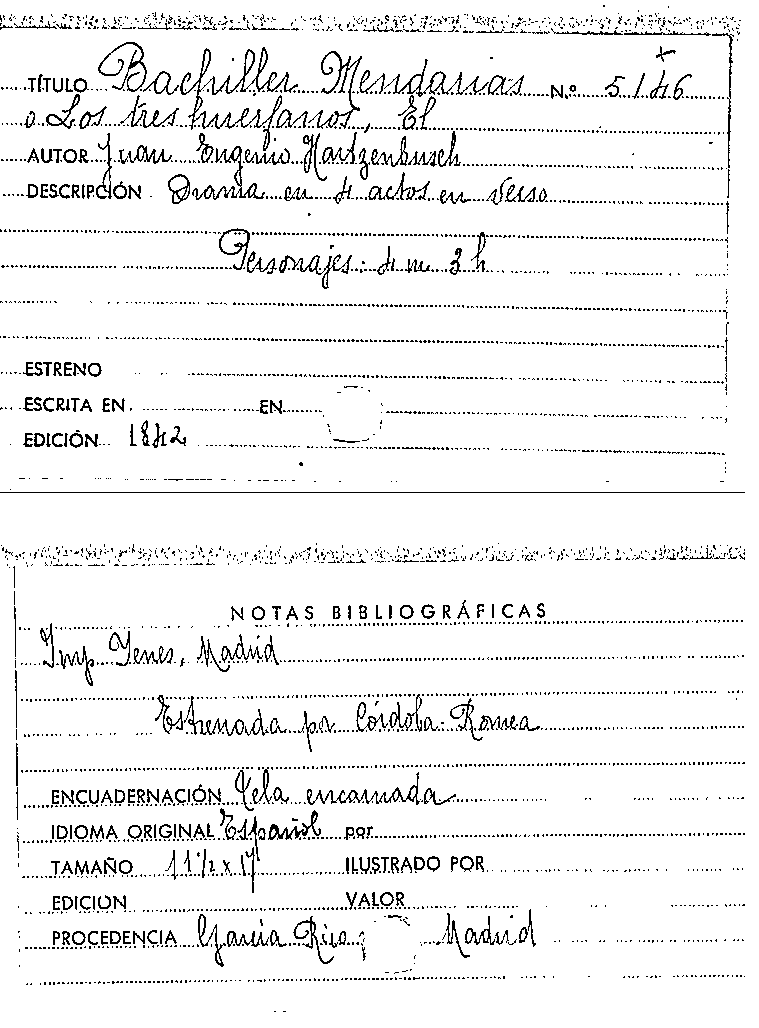 TÍTULO Bachiller Mendarias N.º 5146
o Los tres huerfanos, El
AUTOR Juan Eugenio Hartzenbusch
DESCRIPCIÓN Drama en 4 actos en verso
Personajes: 4 m 3 h
ESTRENO
ESCRITA EN EN
EDICIÓN 1842
NOTAS BIBLIOGRÁFICAS
Imp Yenes, Madrid
Estrenada por Córdoba-Romea
ENCUADERNACIÓN Tela encarnada
IDIOMA ORIGINAL Español por
TAMAÑO 11 1/2 x 17 ILUSTRADO POR
EDICION VALOR
PROCEDENCIA Garcia Rico, Madrid